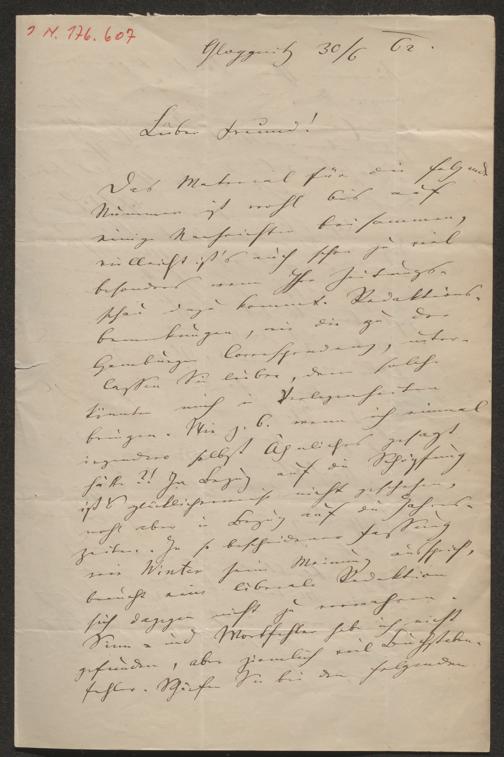 J.N. 176.607
Gloggnitz 30/6 62.
Lieber Freund!
Das Material für die folgende
Nummer ist wohl bis auf
einige Nachrichten beisammen,
vielleicht ist's auch schon zu viel
besonders wenn Ihre Zeitungs-
schau dazu kommt. Redaktions-
bemerkungen, wie die zu der
Hamburger Correspondenz, unter-
lassen Sie lieber, denn solche
könnten mich in Verlegenheiten
bringen. Wie z. B. wenn ich einmal
irgendwo selbst Ähnliches gesagt
hätte?! In Bezug auf die Schöpfung
ist es glücklicherweise nicht geschehen,
wohl aber in Bezug auf die Jahres-
zeiten. In so bescheidener Fassung
wie Winter seine Meinung ausspricht,
braucht eine liberale Redaktion
sich dagegen nicht zu verwahren.
Sinn- und Wortfehler hab ich nicht
gefunden, aber ziemlich viel Buchstaben-
fehler. Sie bei den folgenden